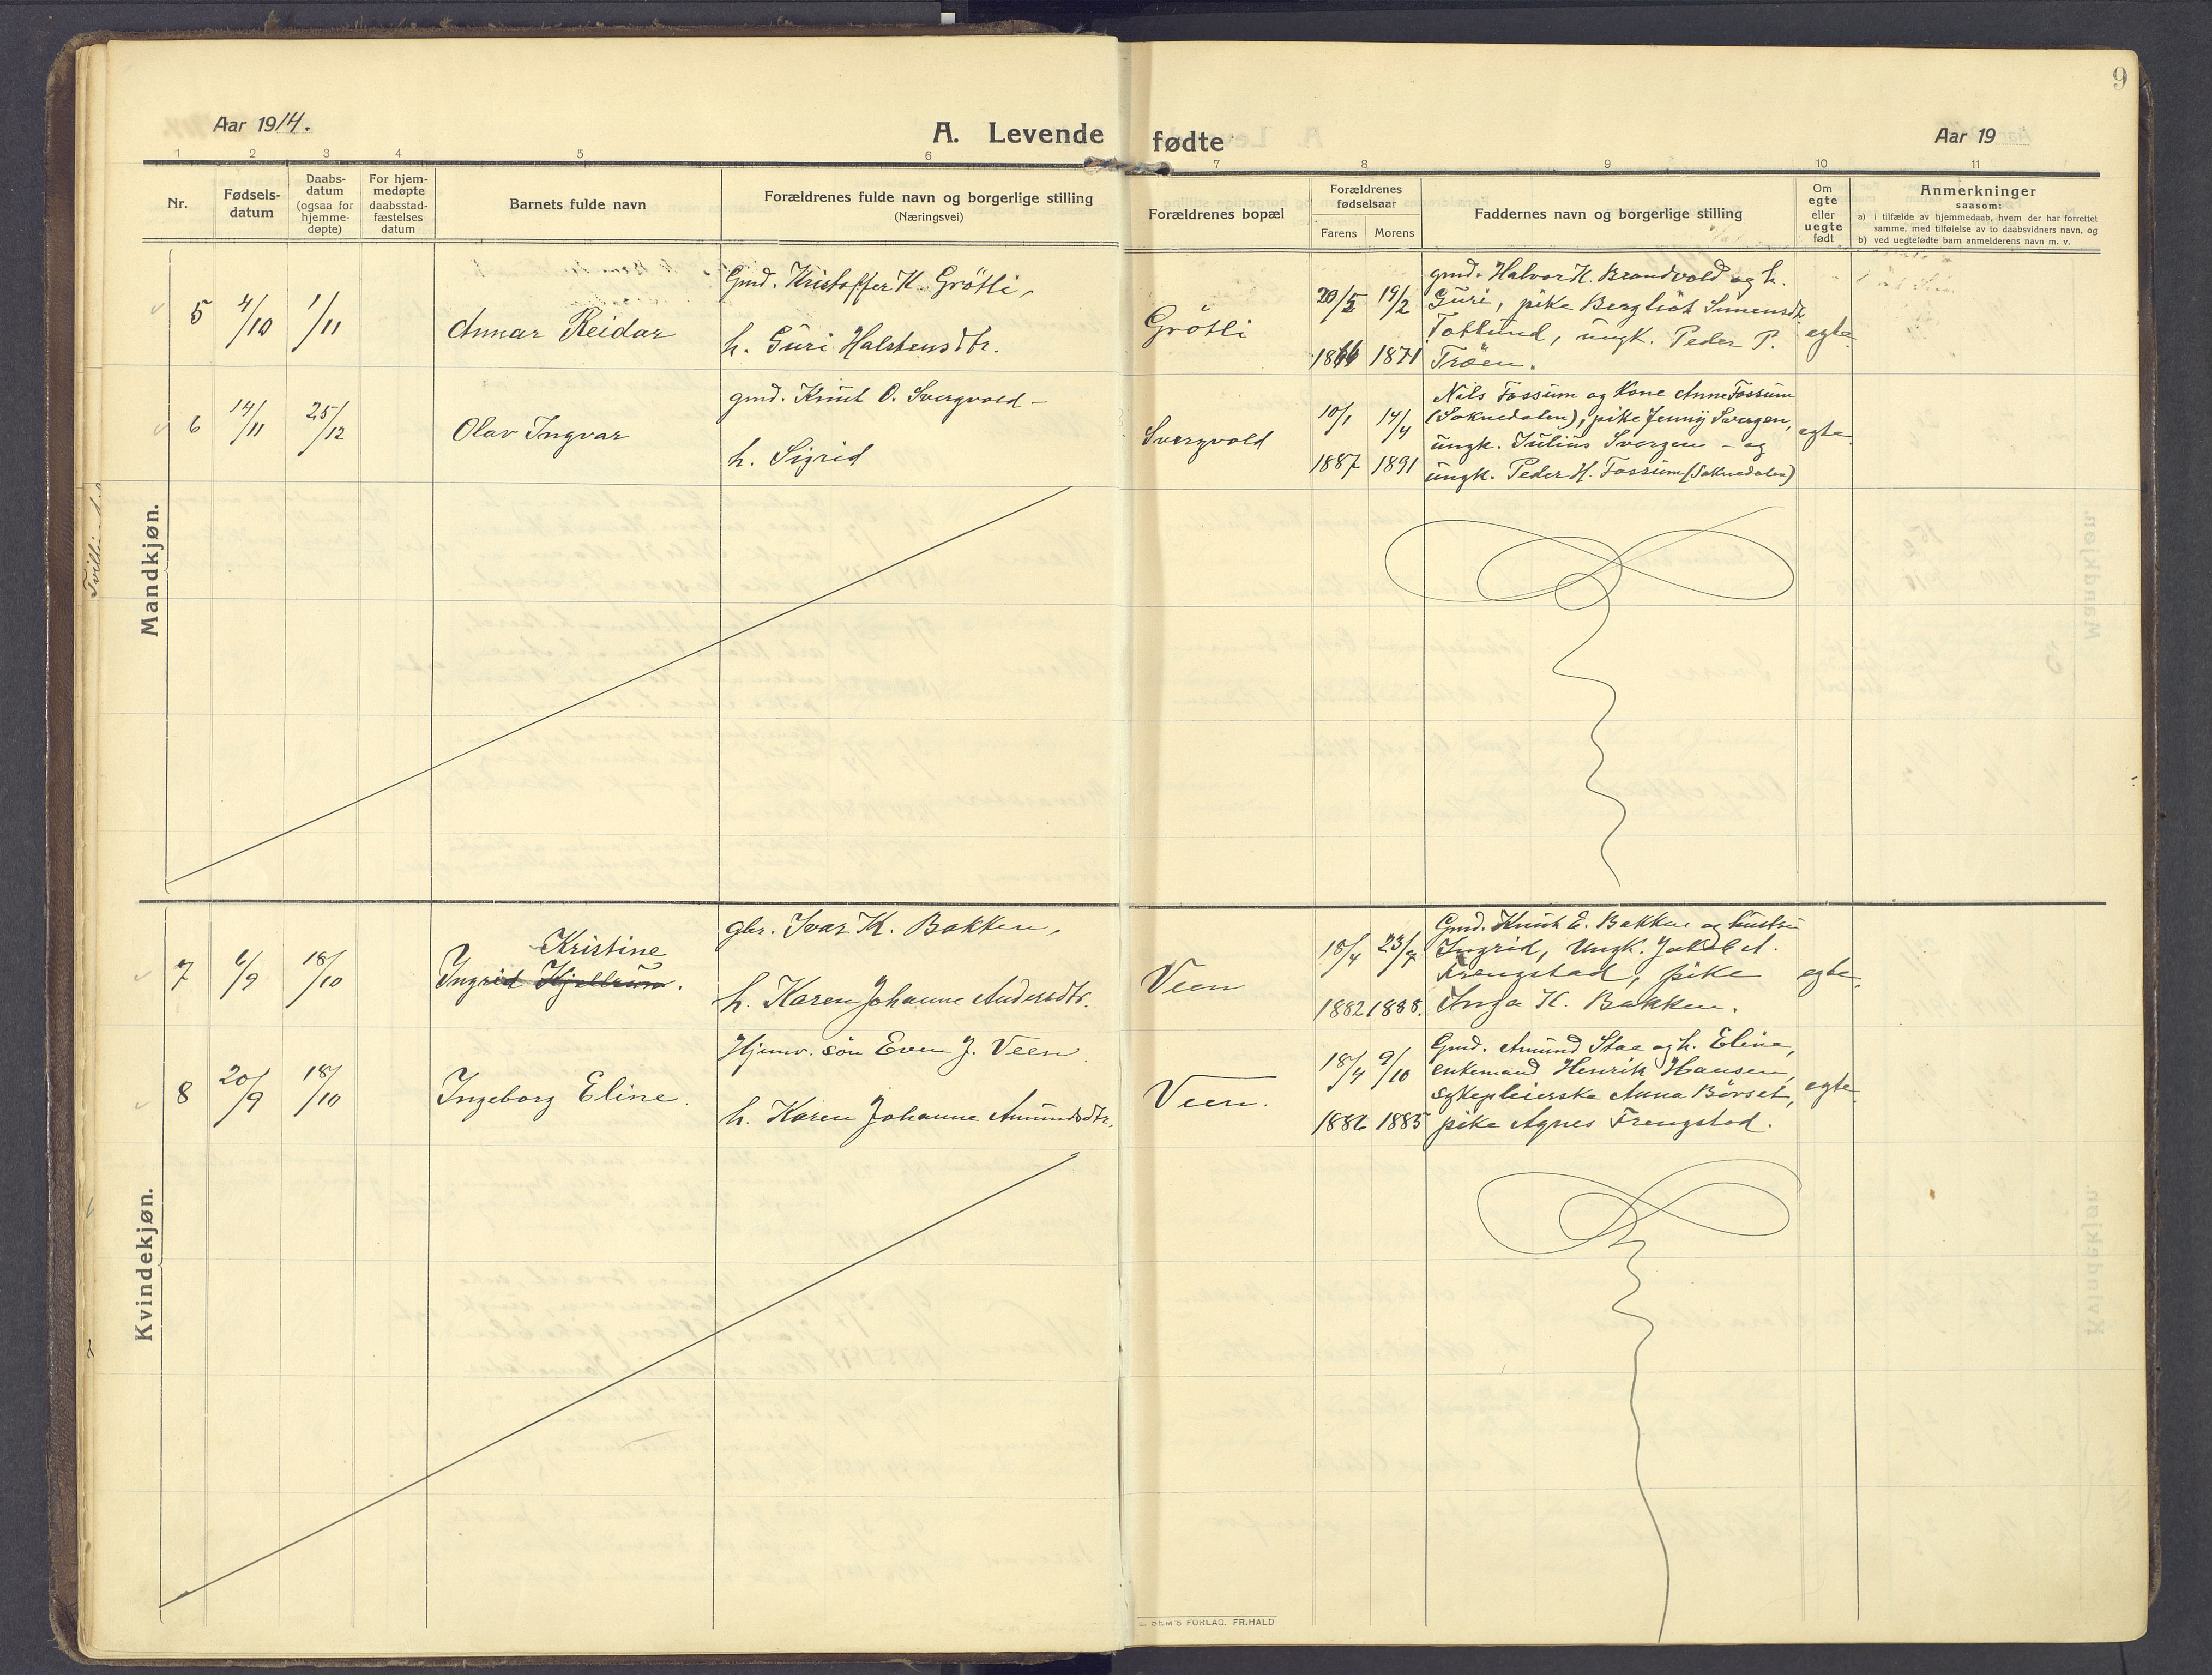 9
Aar 1914.
A. Levende fødte
Aar 19
1 2 3 4 5 6 7 8 9 10 11
Nr.
Fødsels-
datum
Daabs-
datum
(ogsaa for
hjemme-
døpte)
For hjem-
medøpte
daabsstad-
fæstelses
datum
Barnets fulde navn
Forældrenes fulde navn og borgerlige stilling
(Næringsvei)
Forældrenes bopæl
Forældrenes
fødselsaar
Farens Morens
Faddernes navn og borgerlige stilling
Om
egte
eller
uegte
født
Anmerkninger
saasom:
a) i tilfælde av hjemmedaab, hvem der har forrettet
samme, med tilføielse av to daabsvidners navn, og
b) ved uegtefødte barn anmelderens navn m. v.
Mandkjøn.
5 4/10 1/11
Annar Reidar
Gmd. Kristoffer K. Grötli,
h. Guri Halstensdtr.
Grötli
20/5 19/2
1866 1871
gmd. Halvor K. Brandvold og h.
Guri, pike Bergliot Simensdtr.
Totlund, ungk. Peder P.
Tröen.
egte
6 14/11 25/12
Olav Ingvar
gmd. Knut O. Svergvold –
h. Sigrid
Svergvold
10/1 14/4
1887 1891
Nils Fossum og Kone Anne Fossum
(Soknedalen), pike Jenny Svergen,
ungk. Julius Svergen – og
ungk. Peder H. Fossum (Soknedalen)
egte
Kvindekjøn.
7 6/9 18/10
Kristine
Ingrid Kjellrun.
gbr. Ivar K. Bakken,
h. Karen Johanne Andersdtr.
Veen
18/4 23/7
1882 1888.
Gmd. Knut E. Bakken og hustru
Ingrid, Ungk. Jakob A.
Frengstad, pike
Inga K. Bakken.
egte.
8 20/9 18/10
Ingeborg Eline.
Hjemv. sön Even J. Veen.
h. Karen Johanne Amundsdtr.
Veen.
18/4 9/10
1882 1885
Gmd. Amund Stae og h. Eline,
enkemand Henrik Hansen,
sykepleierske Anna Börset,
pike Agnes Frengstad.
egte
SEM'S FORLAG. FR.HALD